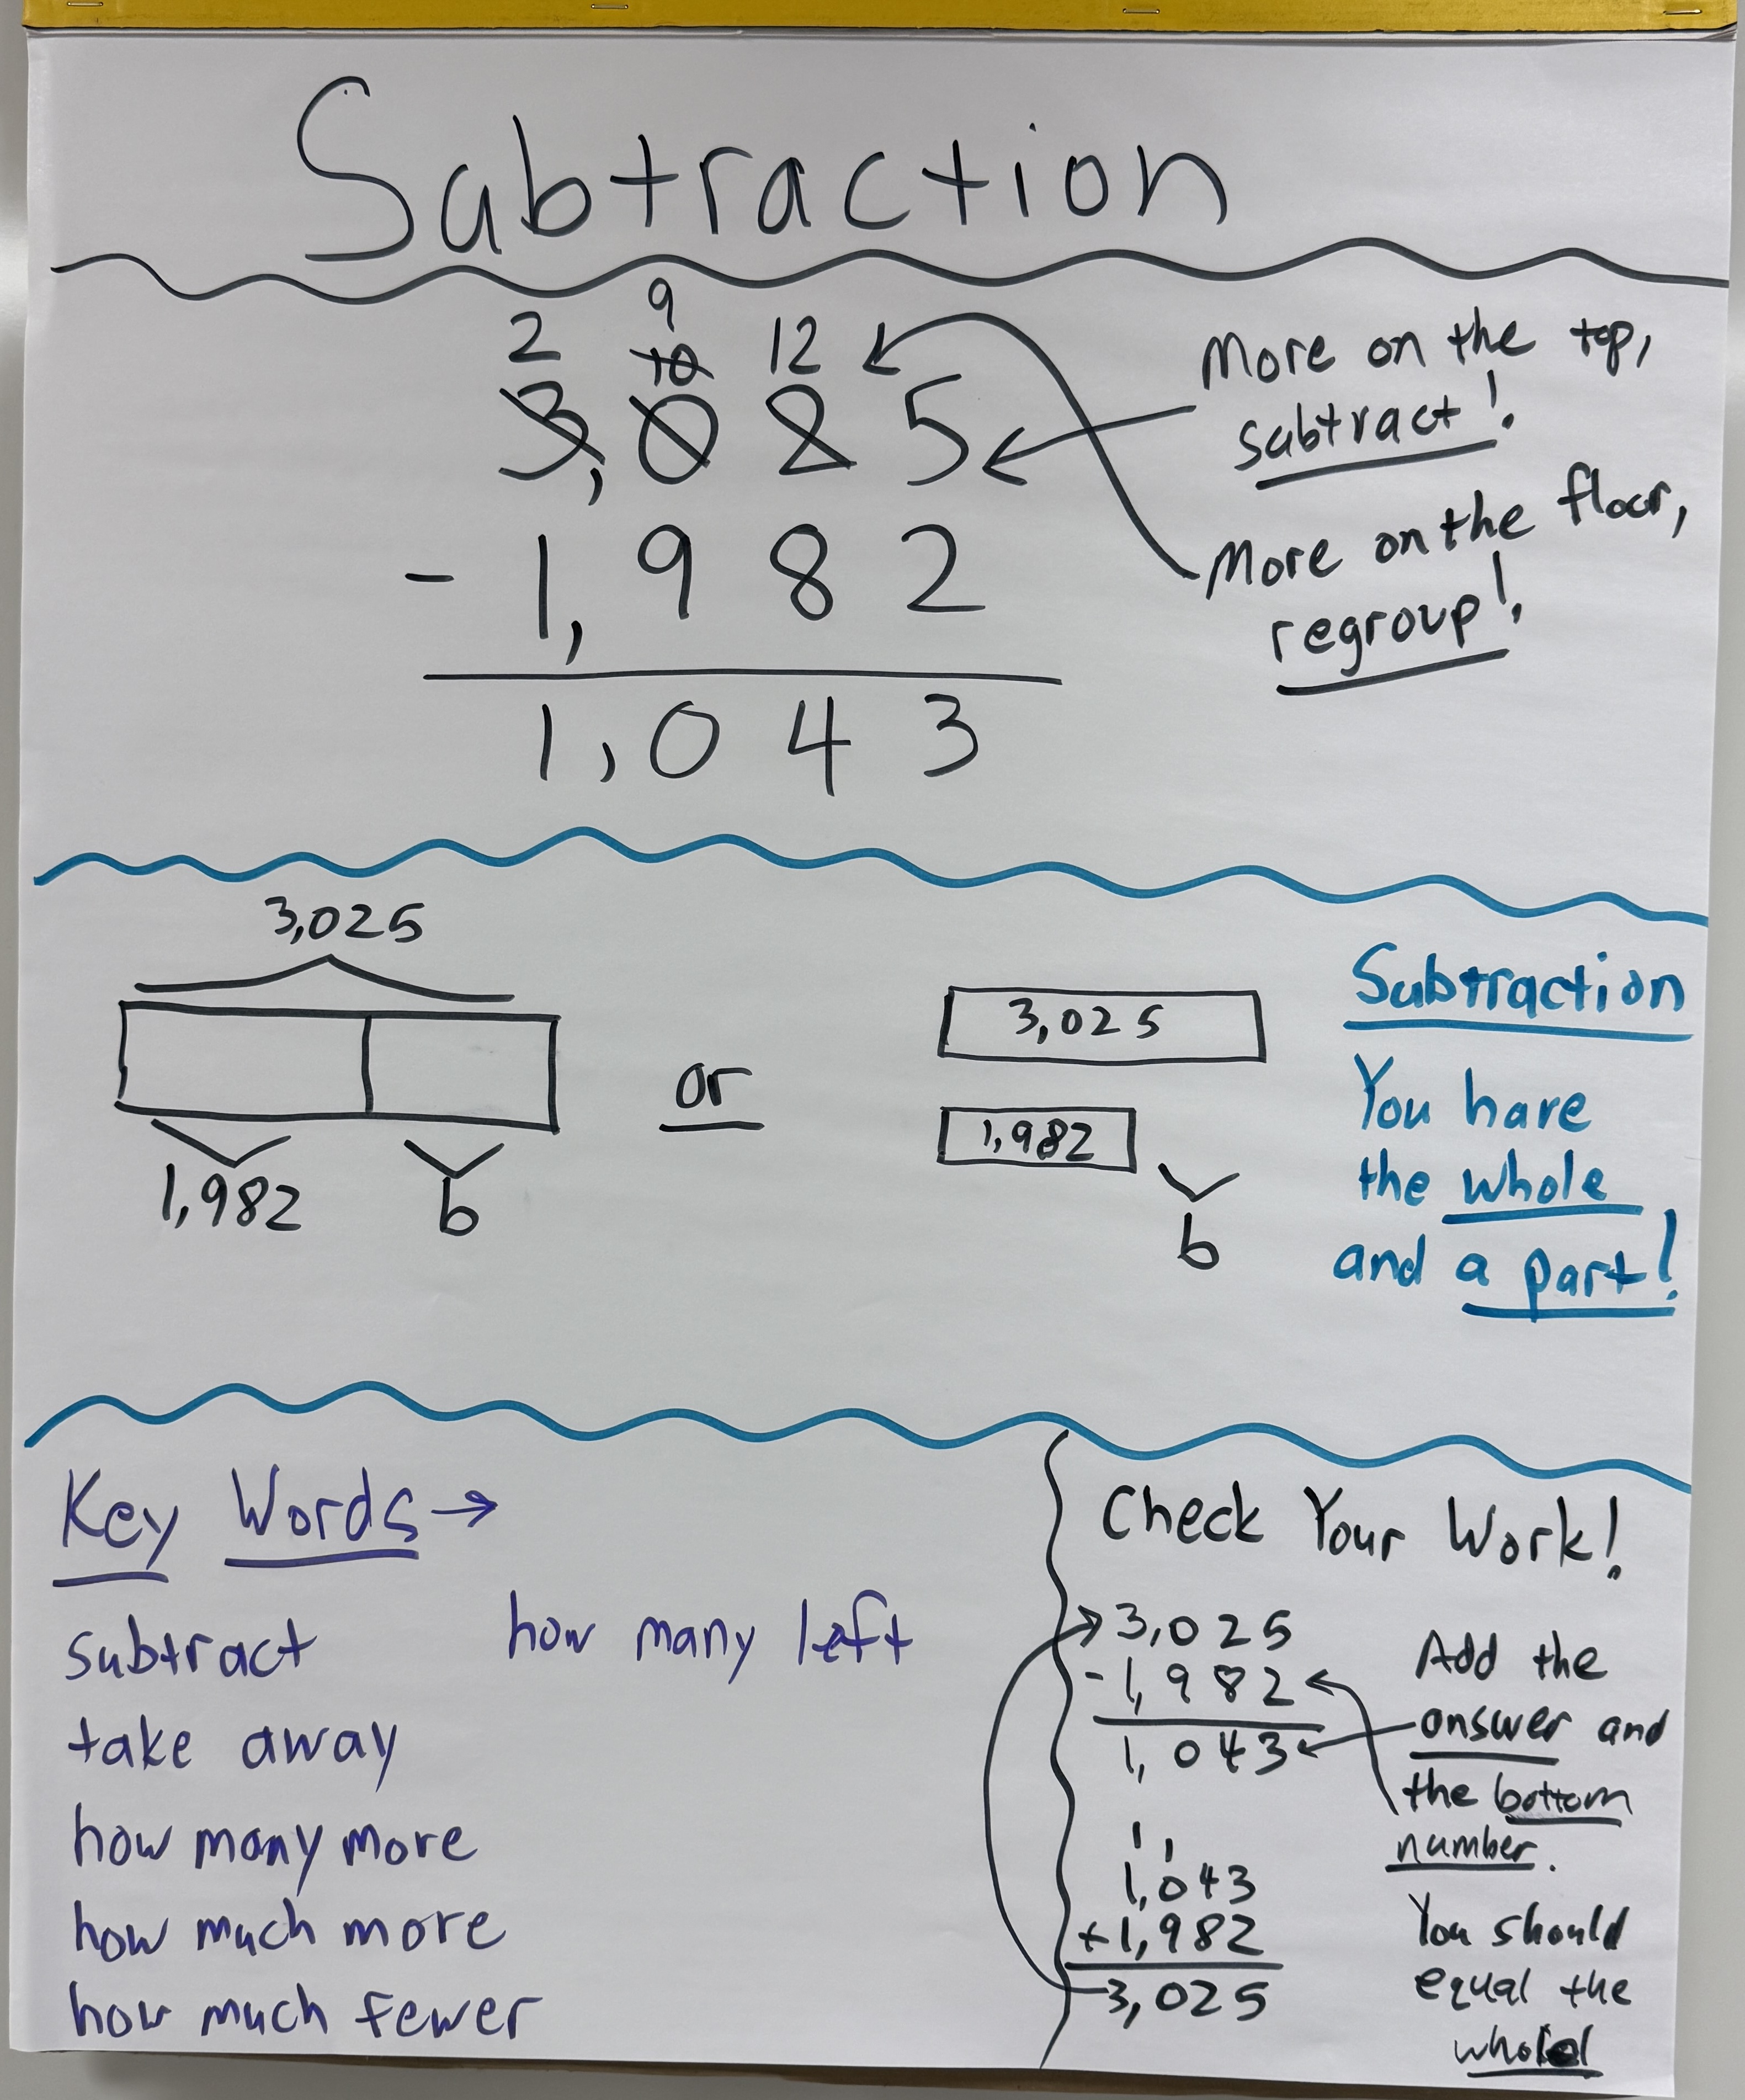 Subtraction
9
2 10 12
3,025
- 1,982
1,043
More on the top,
subtract!
More on the floor,
regroup!
3,025
1,982 b
or
3,025
1,982
b
Subtraction
You have
the whole
and a part!
Key Words →
subtract
take away
how many more
how much more
how much fewer
how many left
Check Your Work!
3,025
- 1,982
1,043
1 1
1,043
+1,982
3,025
Add the
answer and
the bottom
number.
You should
equal the
whole